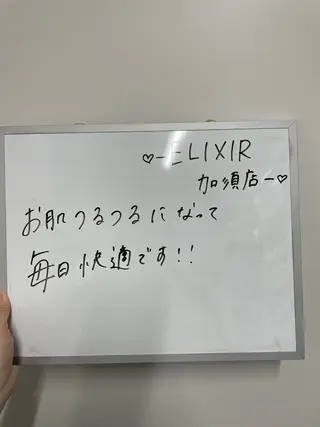 ♡-ELIXIR
加須店-♡
お肌つるつるになって
毎日快適です!!